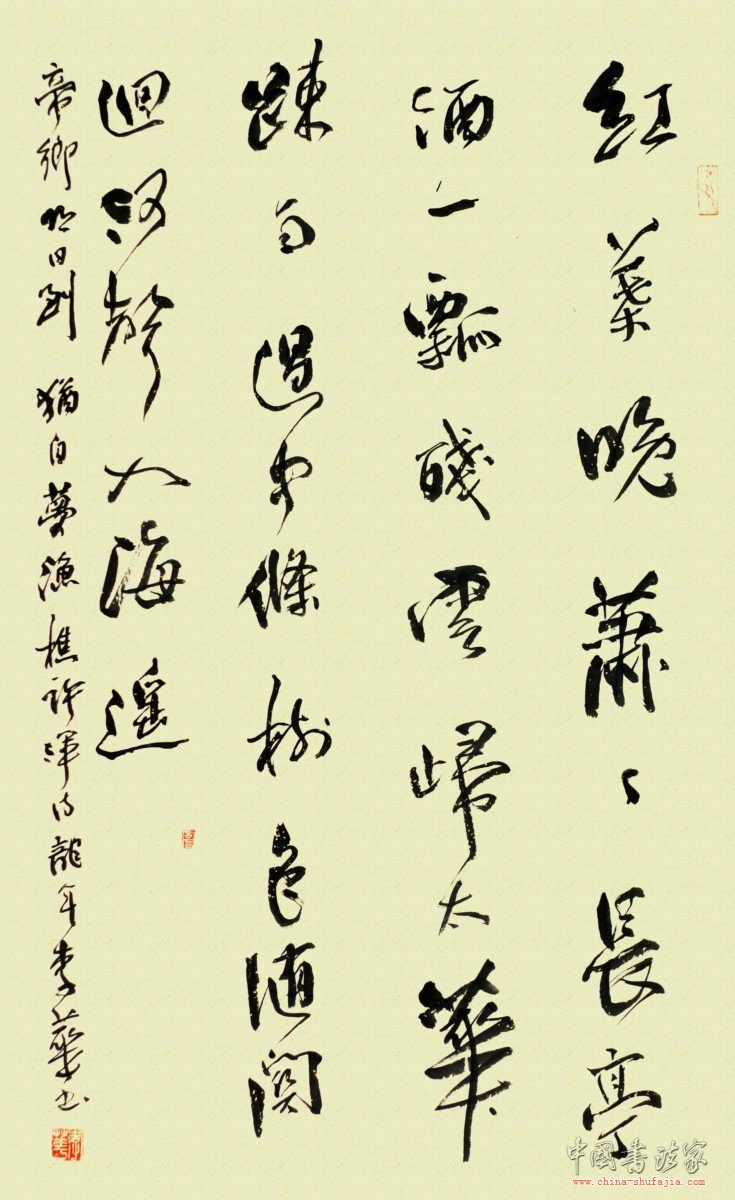 紅葉晚蕭々長亭
酒一瓢殘雲歸太華
踈雨過中條樹色随関
迴河聲入海遥
帝鄉明日到猶自夢漁樵許渾诗龍年李華书
中国书法家
www.china-shufajia.com